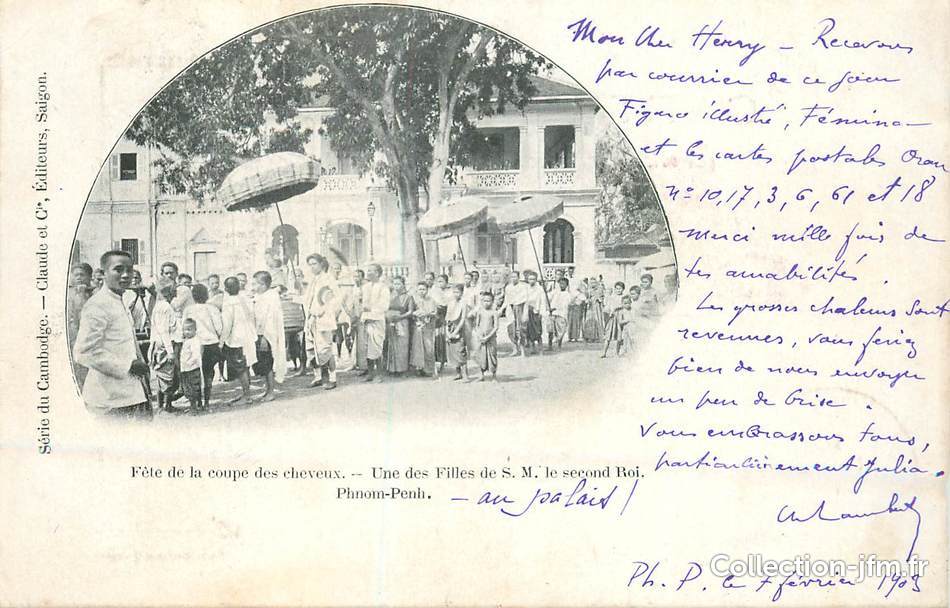 Série du Cambodge. — Claude et Cie, Éditeurs, Saigon.
Mon cher Henry — Recevons
par courrier de ce jour
Figaro illustré, Fémina —
et les cartes postales Oran
nos 10, 17, 3, 6, 61 et 18
Merci mille fois de
tes amabilités.
Les grosses chaleurs sont
revenues, vous feriez
bien de nous envoyer
un peu de brise.
Vous embrassons tous,
particulièrement Julia.
Fête de la coupe des cheveux. -- Une des Filles de S. M. le second Roi.
Phnom-Penh. — au palais !
Ph. P. le 7 février 1903
Collection-jfm.fr